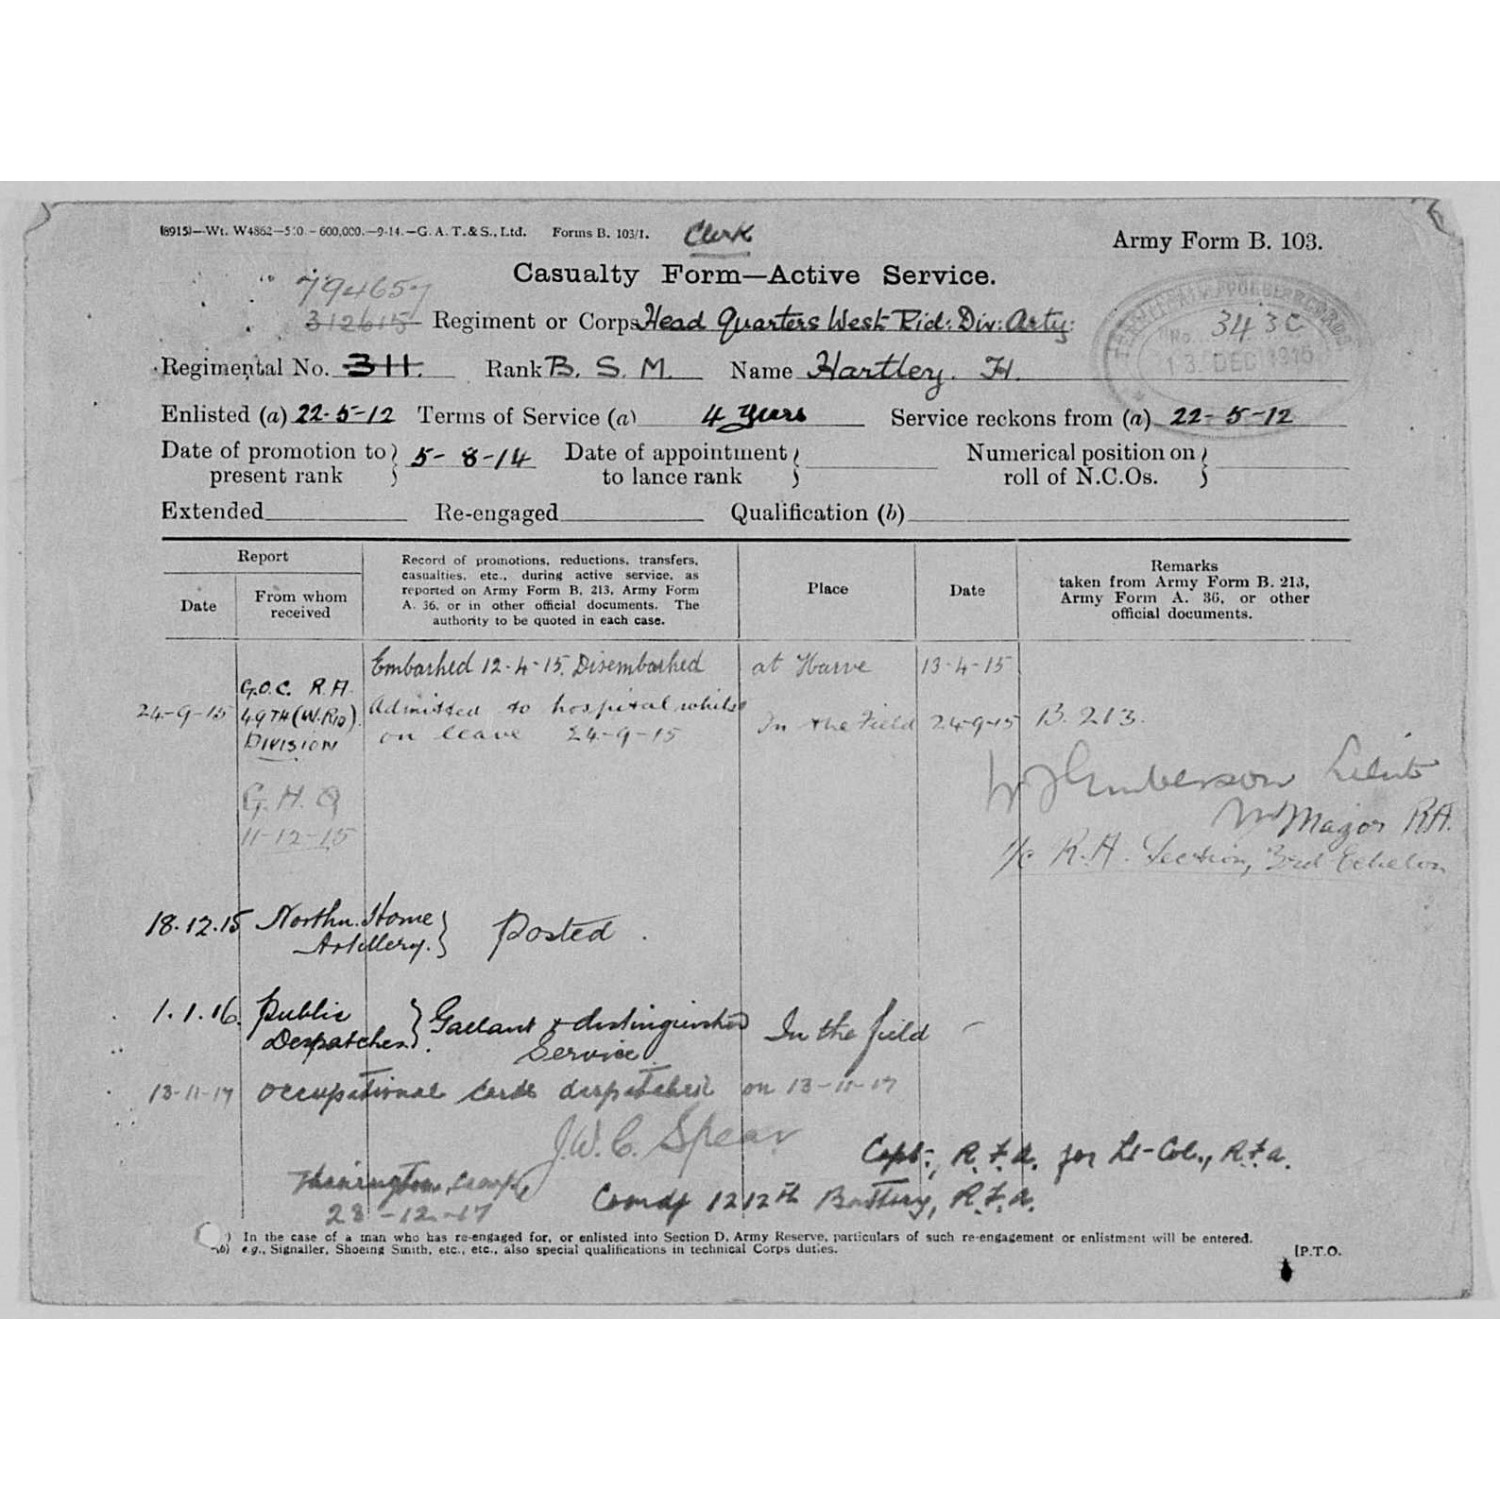 (8915)—Wt. W4862—5:0.—600,000.—9-14.—G. A. T. & S., Ltd. Forms B. 103/1. Clerk
Army Form B. 103.
Casualty Form—Active Service.
794657
312615 Regiment or Corps Head Quarters West Rid: Div: Arty:
No. 343C
13 DEC 1915
Regimental No. 311. Rank B. S. M. Name Hartley. H.
Enlisted (a) 22-5-12 Terms of Service (a) 4 years Service reckons from (a) 22-5-12
Date of promotion to present rank } 5-8-14 Date of appointment to lance rank } Numerical position on roll of N.C.Os. }
Extended Re-engaged Qualification (b)
Report
Date
From whom received
Record of promotions, reductions, transfers,
casualties, etc., during active service, as
reported on Army Form B. 213, Army Form
A. 36, or in other official documents. The
authority to be quoted in each case.
Place
Date
Remarks
taken from Army Form B. 213,
Army Form A. 36, or other
official documents.
Embarked 12-4-15. Disembarked at Havre 13-4-15
24-9-15 G.O.C. R.A. 49TH (W. RID) DIVISION Admitted to hospital whilst on leave 24-9-15 In the Field 24-9-15 B. 213.
G. H. Q
11-12-15
Lieut
Major RA.
i/c R.A. Section, 3rd Echelon
18.12.15 Northn. Home Artillery. } Posted.
1.1.16 Public Despatches } Gallant & distinguished Service. In the field —
13-11-17 Occupational cards despatched on 13-11-17
J.W.C. Spear
Capt:, R.F.A. for Lt-Col., R.F.A.
Camp,
28-12-17
Comdg 1212th Battery, R.F.A.
) In the case of a man who has re-engaged for, or enlisted into Section D, Army Reserve, particulars of such re-engagement or enlistment will be entered.
(b) e.g., Signaller, Shoeing Smith, etc., etc., also special qualifications in technical Corps duties.
[P.T.O.